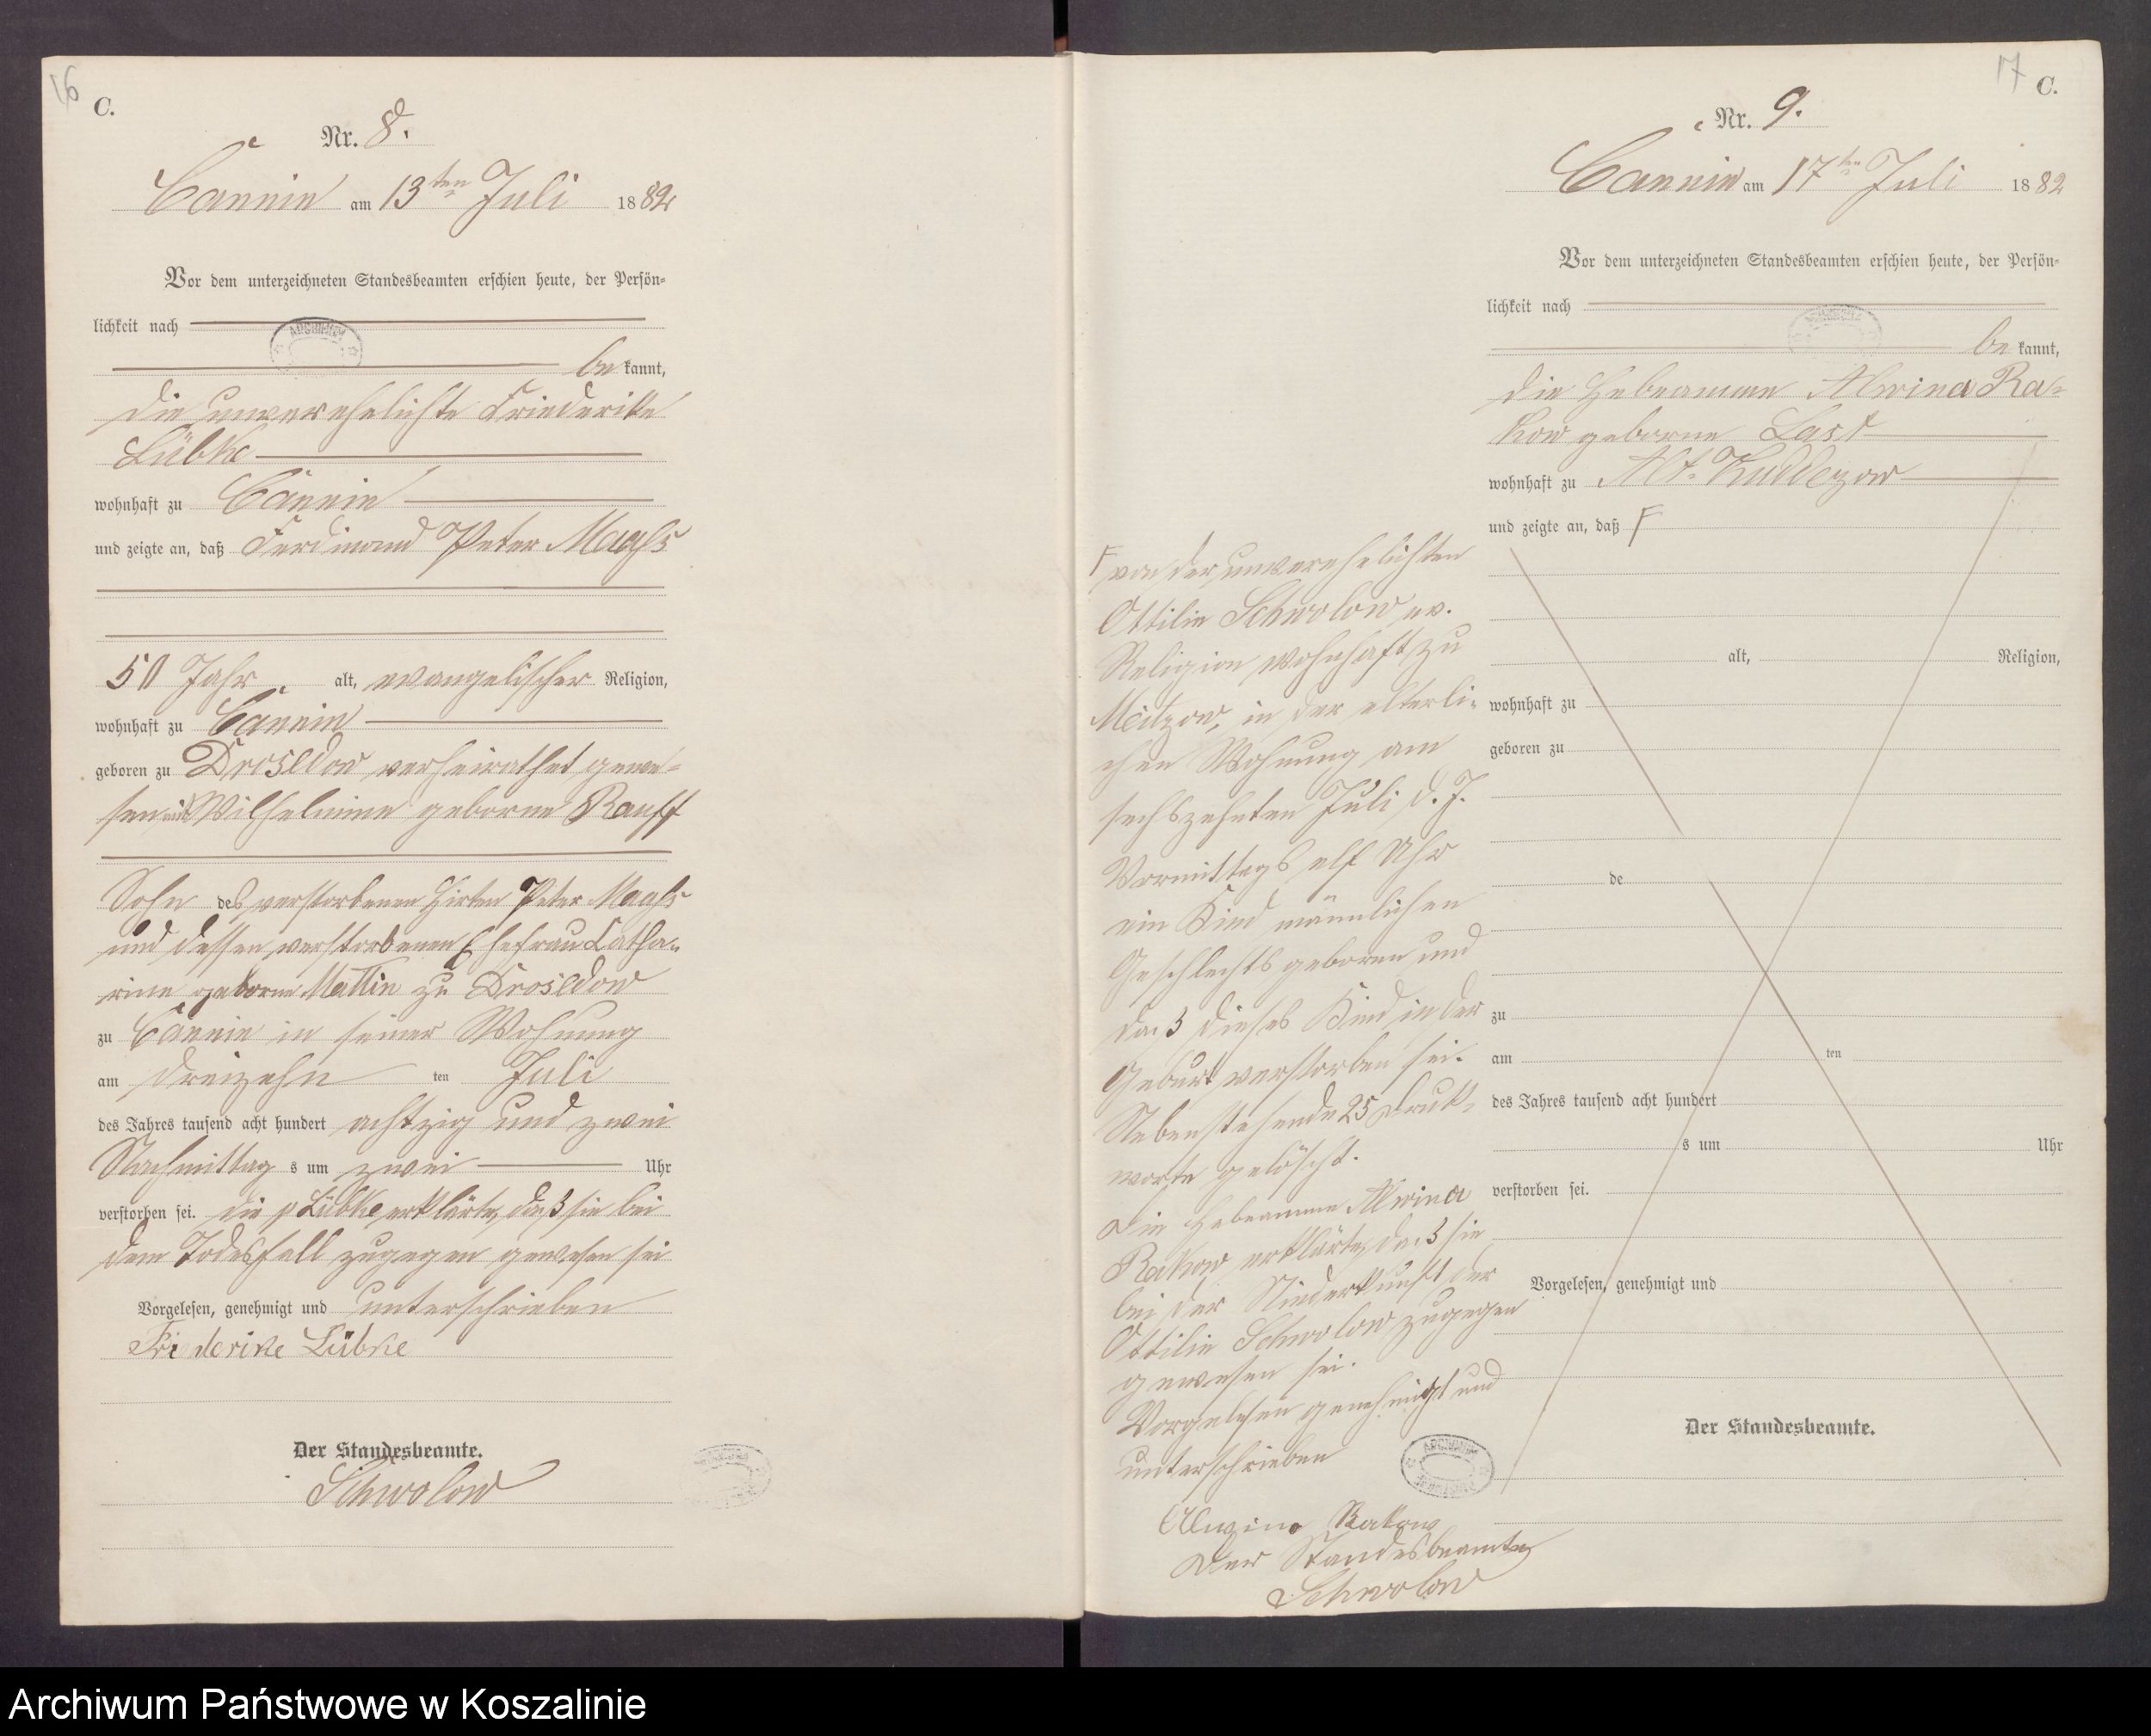 16
C.
Nr. 8.
Cannin am 13ten Juli 1882
Vor dem unterzeichneten Standesbeamten erschien heute, der Persön-
lichkeit nach
be kannt,
die unverehelichte Friederike
Lübke
wohnhaft zu Cannin
und zeigte an, daß Ferdinand Peter Maaß
50 Jahr alt, evangelischer Religion,
wohnhaft zu Cannin
geboren zu Drosedow verheirathet gewe-
sen mit Wilhelmine geborne Rauff
Sohn des verstorbenen Hirten Peter Maaß
und dessen verstorbenen Ehefrau Catha-
rine geborne Mattin zu Drosedow
zu Cannin in seiner Wohnung
am dreizehn ten Juli
des Jahres tausend acht hundert achtzig und zwei
Nachmittag s um zwei Uhr
verstorben sei. die p Lübke erklärte, daß sie bei
dem Todesfall zugegen gewesen sei
Vorgelesen, genehmigt und unterschrieben
Friederike Lübke
Der Standesbeamte.
Schwolow
17
C.
Nr. 9.
Cannin am 17ten Juli 1882
Vor dem unterzeichneten Standesbeamten erschien heute, der Persön-
lichkeit nach
be kannt,
die Hebeamme Alwina Ra-
kow geborne Last
wohnhaft zu Alt-Kuddezow
und zeigte an, daß F
F von der unverehelichten
Ottilie Schwolow ev.
Religion wohnhaft zu
Meitzow, in der elterli-
chen Wohnung am
sechszehnten Juli d. J.
Vormittags elf Uhr
ein Kind männlichen
Geschlechts geboren und
daß dieses Kind in der
Geburt verstorben sei.
Nebenstehende 25 Druk-
worte gelöscht.
Die Hebeamme Alwina
Rakow erklärte, daß sie
bei der Niederkunft der
Ottilie Schwolow zugegen
gewesen sei.
Vorgelesen genehmigt und
unterschrieben
Alwine Rakow
Der Standesbeamte
Schwolow
alt, Religion,
wohnhaft zu
geboren zu
de
zu
am ten
des Jahres tausend acht hundert
s um Uhr
verstorben sei.
Vorgelesen, genehmigt und
Der Standesbeamte.
Archiwum Państwowe w Koszalinie